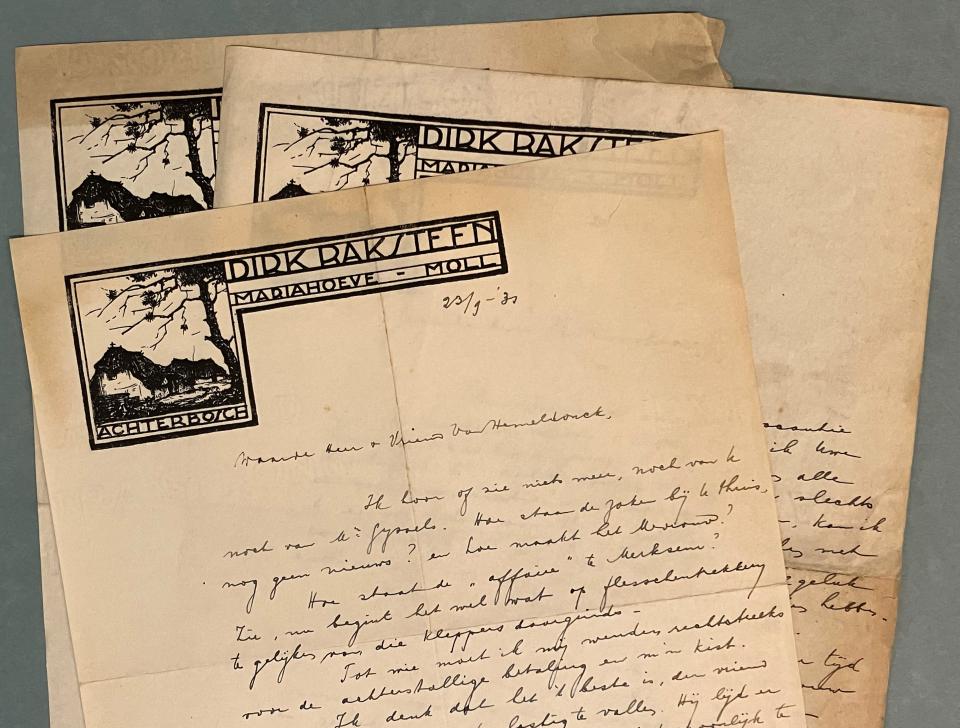 DIRK BAKSTEEN
MARIAHOEVE - MOLL
ACHTERBOSCH
23/9-'31
Waarde Heer & Vriend Van Hemeldonck,
Ik hoor of zie niets meer, noch van U
noch van Mr Gyssels. Hoe staan de zaken bij U thuis,
nog geen nieuws? en hoe maakt het Mevrouw?
Hoe staat de "affaire" te Merksem?
Zie, nu begint het wel wat op flesschentrekkerij
te gelijken van die kleppers daarginds -
Tot wie moet ik mij wenden, rechtstreeks
voor de achterstallige betaling en m'n kist.
Ik denk dat het 't beste is, den vriend
lastig te vallen. Hij lijd er
DIRK BAKSTEEN
MOLL
ik Uwe
alle
slechts
kan ik
met
hebben.
tijd